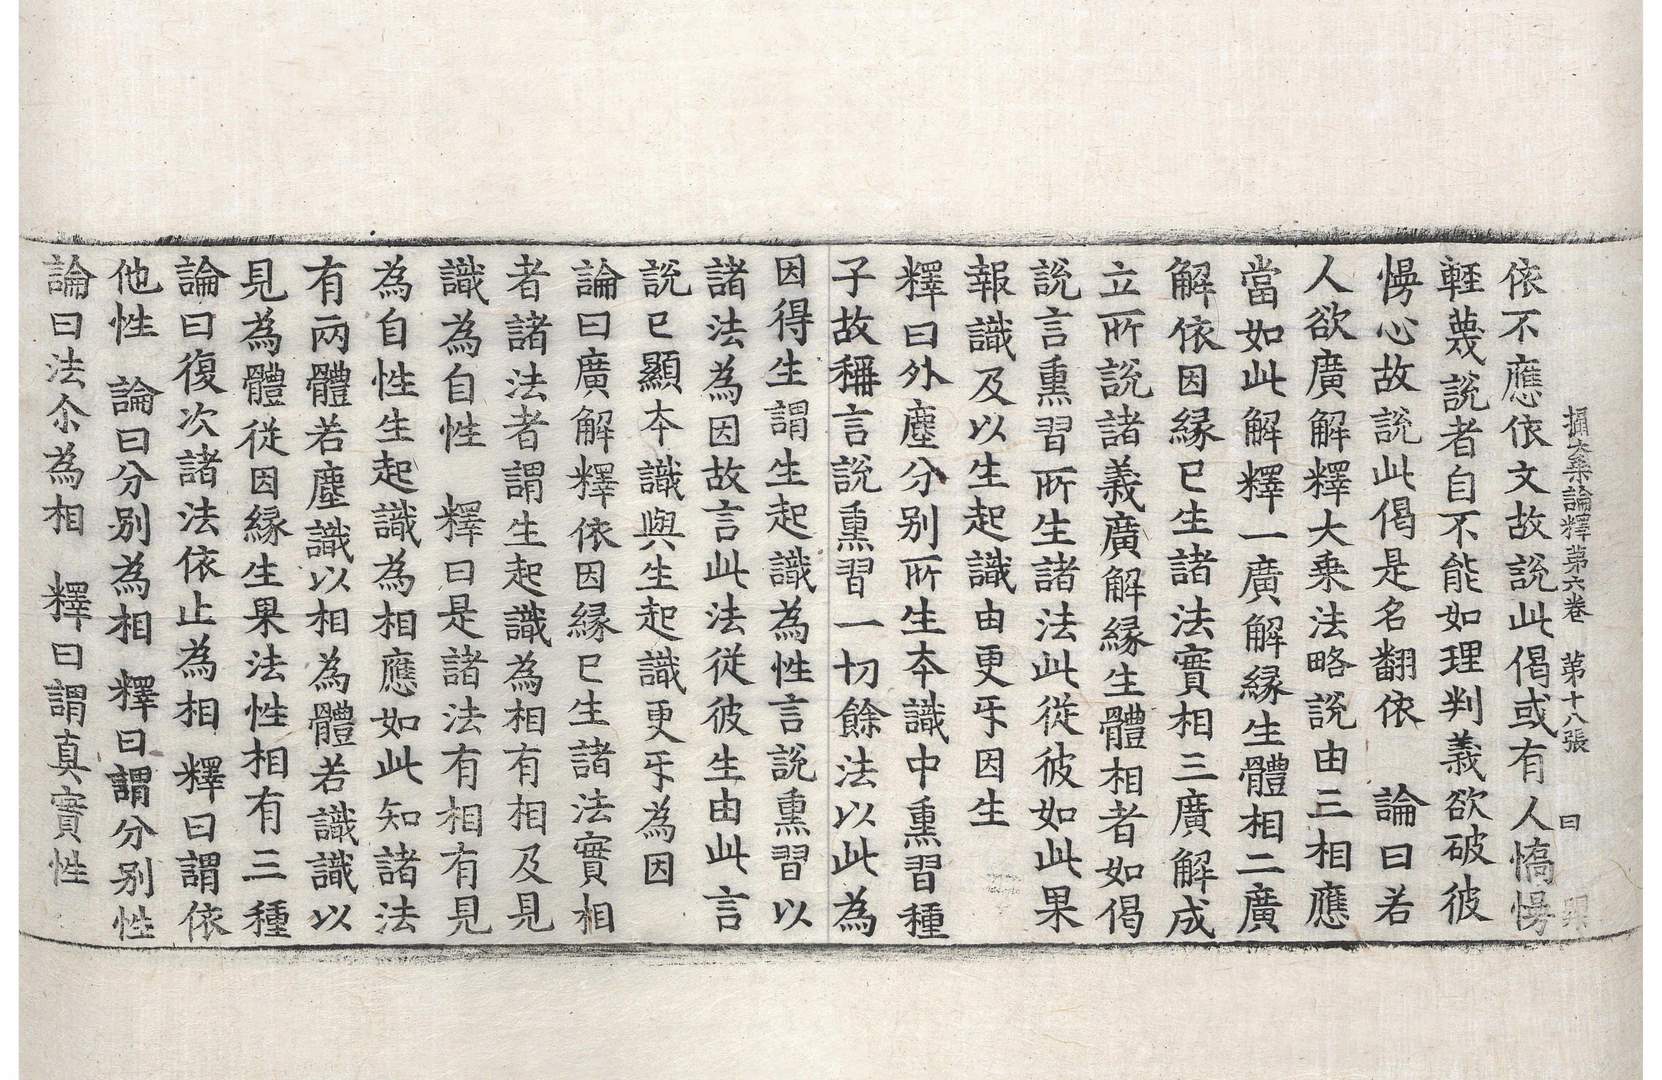 攝大乗論釋第六卷 第十八張 曰
依不應依文故說此偈或有人憍慢
輕蔑說者自不能如理判義欲破彼
慢心故說此偈是名翻依 論曰若
人欲廣解釋大乗法略說由三相應
當如此解釋一廣解緣生體相二廣
解依因緣已生諸法實相三廣解成
立所說諸義廣解緣生體相者如偈
說言熏習所生諸法此從彼如此果
報識及以生起識由更乐因生
釋曰外塵分別所生本識中熏習種
子故稱言說熏習一切餘法以此為
因得生謂生起識為性言說熏習以
諸法為因故言此法從彼生由此言
說已顯本識與生起識更乐為因
論曰廣解釋依因緣已生諸法實相
者諸法者謂生起識為相有相及見
識為自性 釋曰是諸法有相有見
為自性生起識為相應如此知諸法
有兩體若塵識以相為體若識識以
見為體從因緣生果法性相有三種
論曰復次諸法依止為相 釋曰謂依
他性 論曰分別為相 釋曰謂分別性
論曰法尒為相 釋曰謂真實性